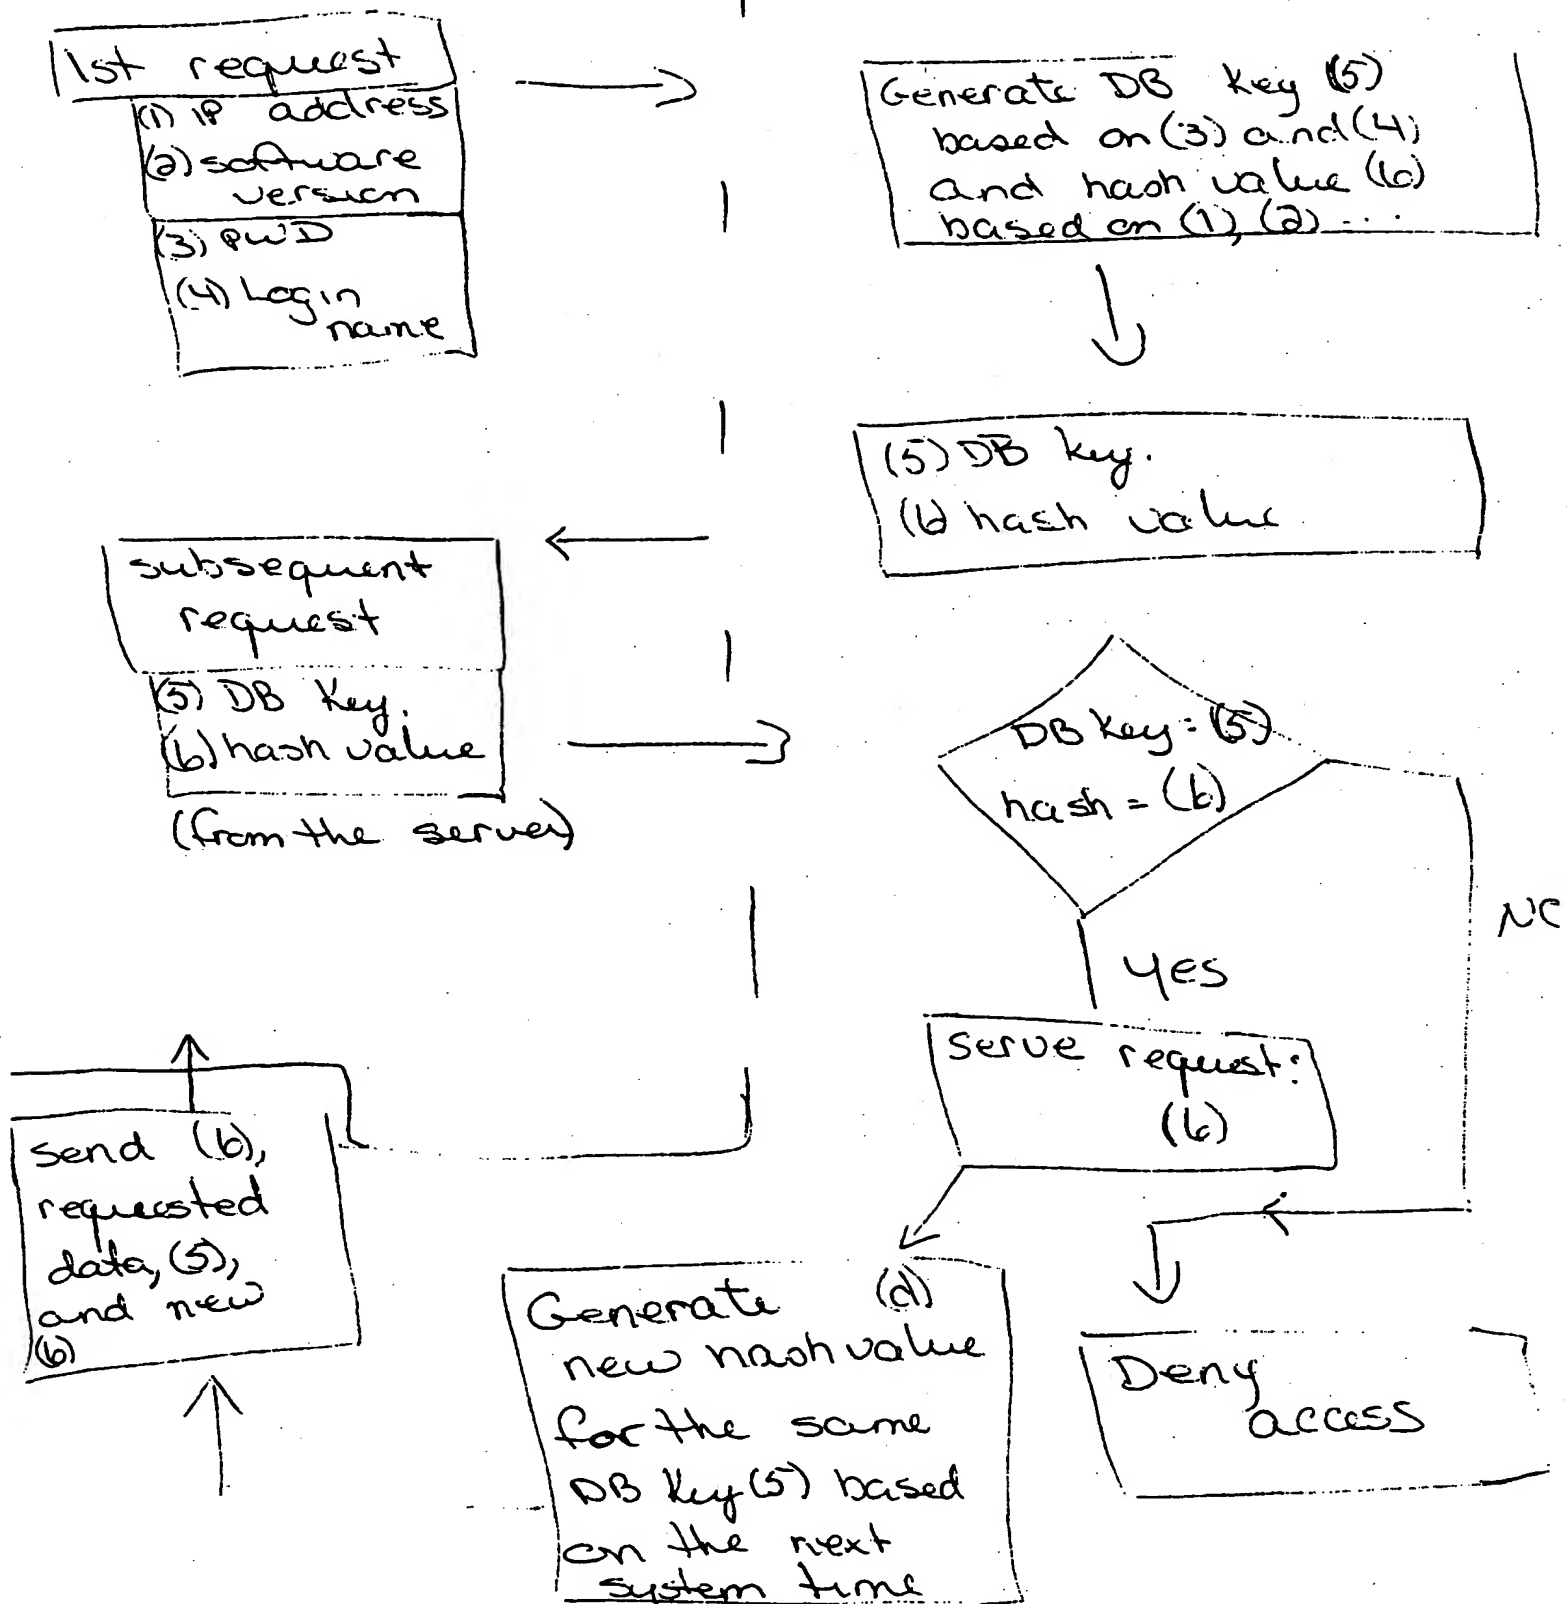 1st request
(1) IP address
(2) software
version
(3) PWD
(4) Login
name
Generate DB key (5)
based on (3) and (4)
and hash value (6)
based on (1), (2) ...
(5) DB key.
(6) hash value
subsequent
request
(5) DB key.
(6) hash value
(from the server)
DB key = (5)
hash = (6)
NO
YES
Serve request:
(6)
send (6),
requested
data, (5),
and new
(6)
Generate (d)
new hash value
for the same
DB key (5) based
on the next
system time
Deny
access